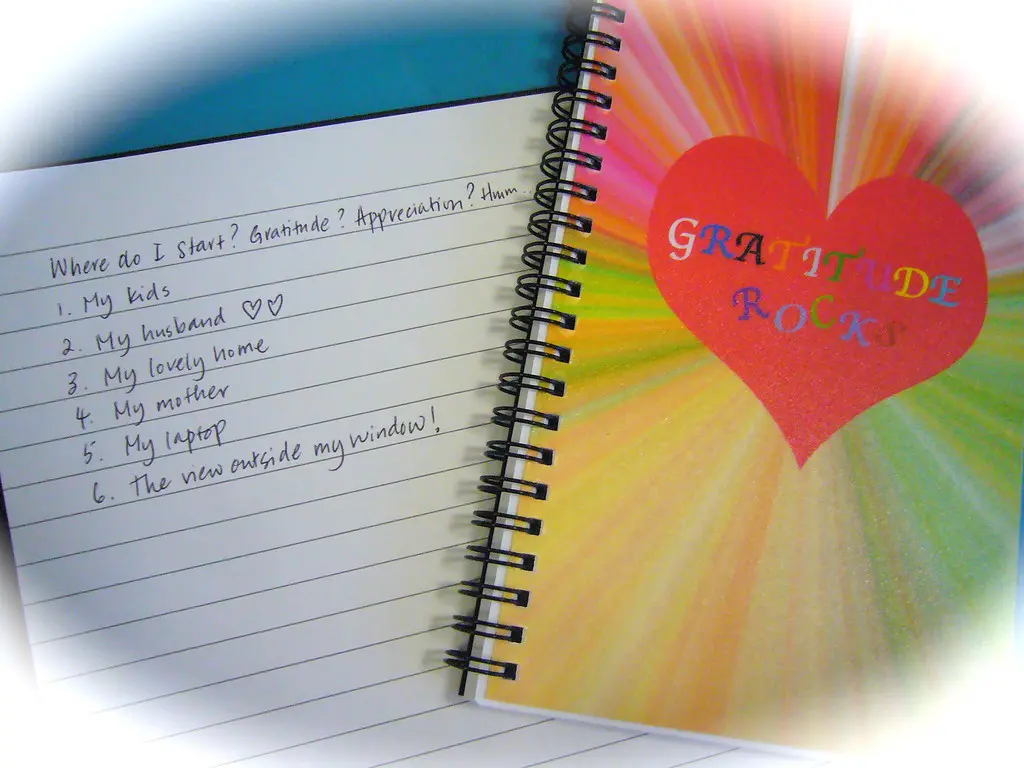 Where do I start? Gratitude? Appreciation? Hmm...
1. My kids
2. My husband ♡♡
3. My lovely home
4. My mother
5. My laptop
6. The view outside my window!
GRATITUDE
ROCKS